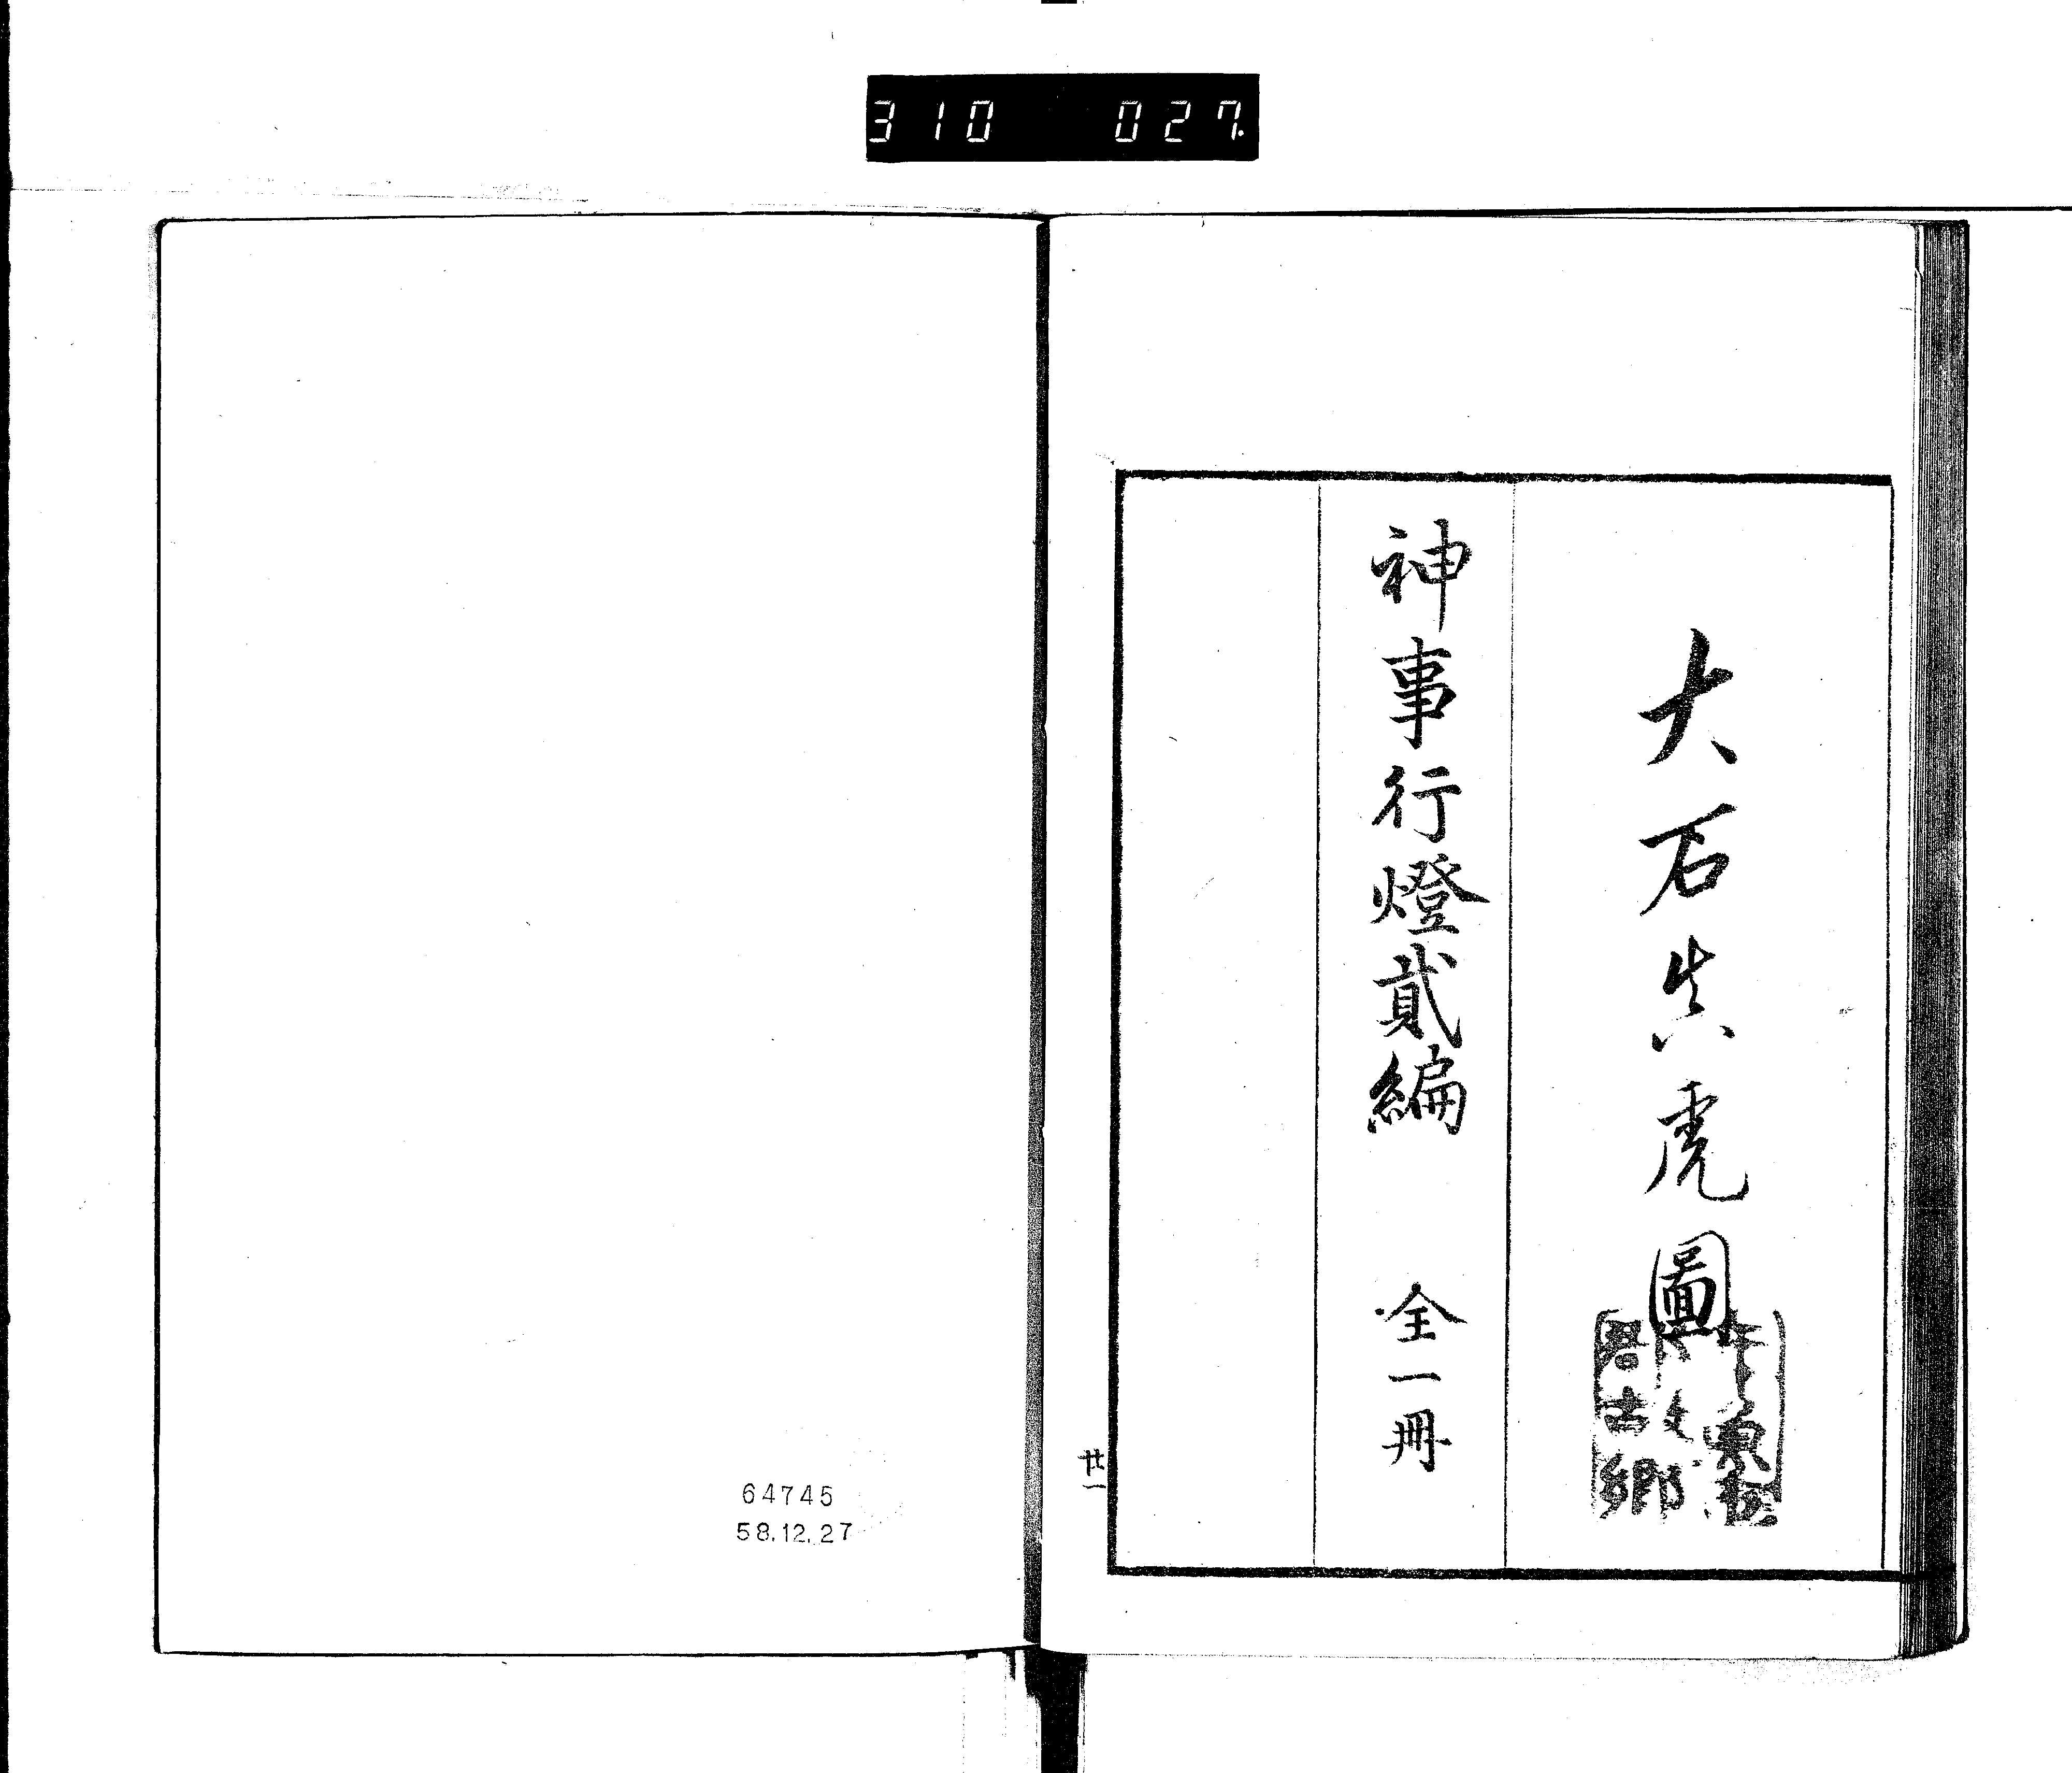 310 027
大石真虎圖
神事行燈貳編 全一冊
廿一
64745
58.12.27